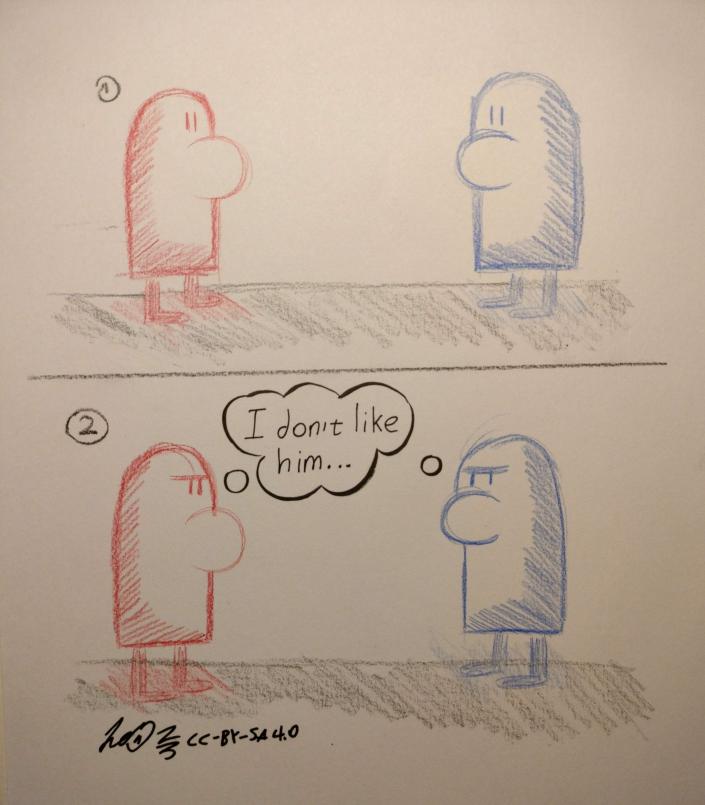 1
2
I don't like
him...
CC-BY-SA 4.0